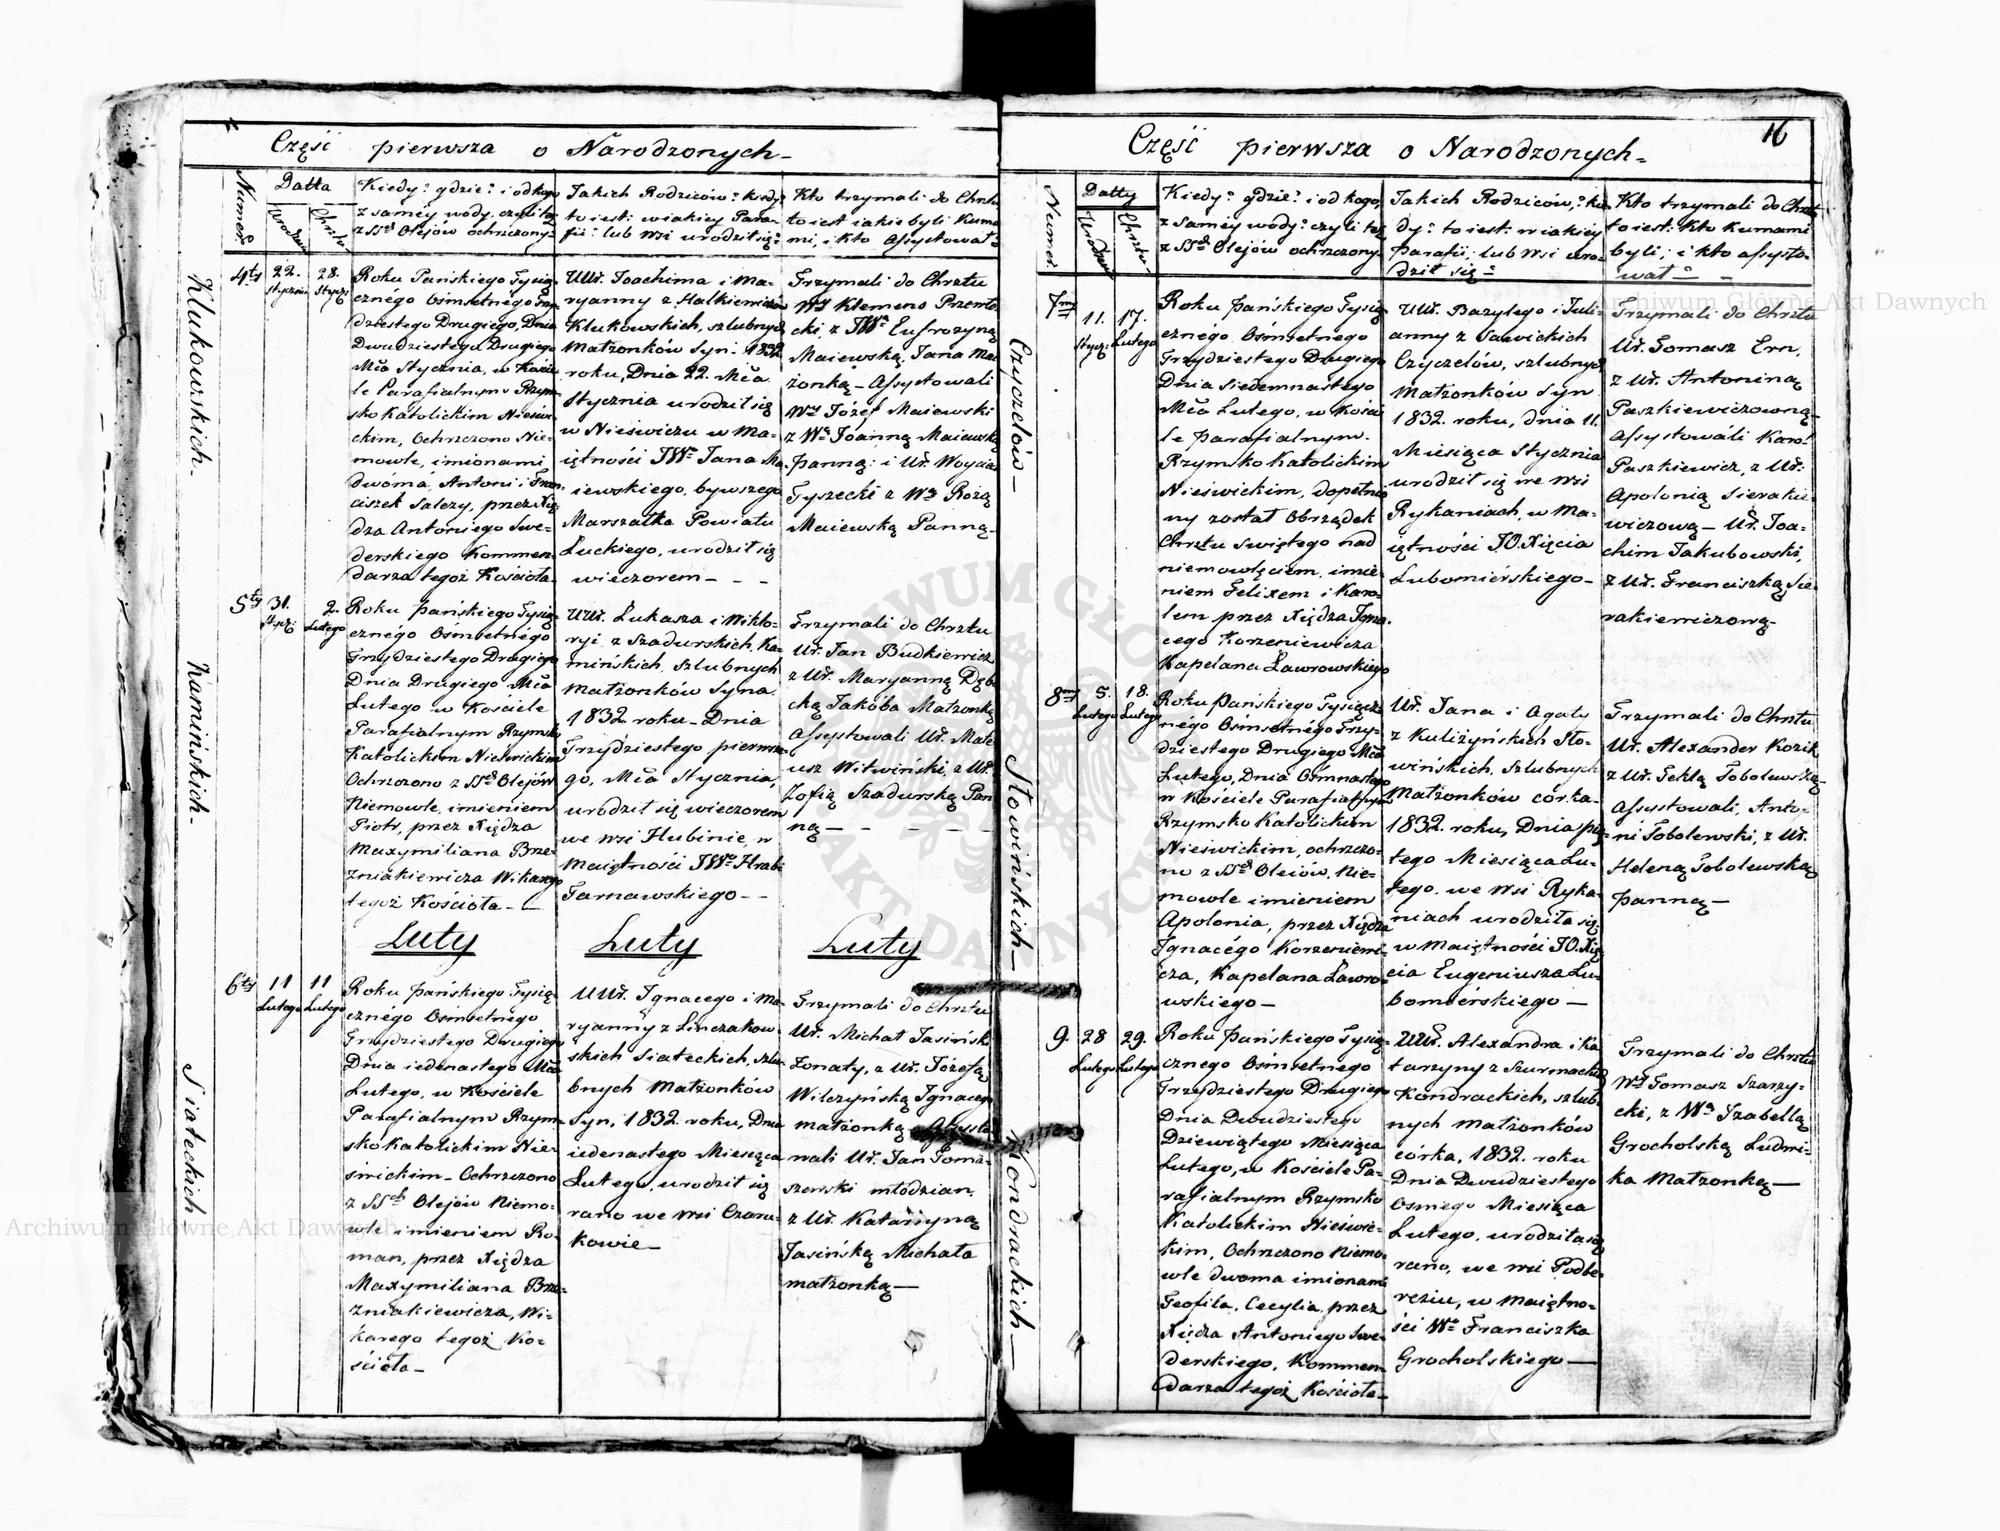 Część pierwsza o Narodzonych
Numer
Datta
Urodzin
Chrztu
Kiedy? gdzie? i od kogo
z samey wody, czyli też
z SSch Olejów ochrzczony
Jakich Rodziców? kiedy
to iest: w iakiey Para-
fii? lub wsi urodził się?
Kto trzymali do Chrztu
to iest iakie byli Kumo-
mi, i kto assystował?
Klukowskich.
4ty
22.
Stycznia
28.
Stycz:
Roku Pańskiego Tysią-
cznégo Ośmsetnégo Trzy-
dziestego Drugiego, Dnia
Dwudziestego Drugiego
Mca Stycznia, w Kości-
le Parafialnym Rzym-
sko Katolickim Nieświ-
ckim, Ochrzczono Nie-
mowle, imionami
dwóma, Antoni i Fran-
ciszek Salezy, przez Xię-
dza Antoniego Swe-
derskiego Kommen-
darza tegoż Kościoła
UUr. Joachima i Ma-
ryanny z Halkiewiczów
Klukowskich, szlubnych
Matżonków Syn: 1832
roku, Dnia 22. Mca
Stycznia urodził się
w Nieświczu w Ma-
iętności JWo Jana Ma-
iewskiego, bywszego
Marszałka Powiatu
Łuckiego, urodził się
wieczorem
Trzymali do Chrztu
Wy Klemens Przemło-
cki, z JWa Eufrozyną
Maiewską, Jana Mał-
żonką - Assystowali
Wy Józef Maiewski
z Wa Joanną Maiewską
Panną: i Ur. Woyciech
Tyszecki z Wa Rożą
Maiewską Panną-
Kamińskich.
5ty
31.
Stycz:
2.
Lutego
Roku Pańskiego Tysią-
cznégo Ośmsetnégo
Trzydziestego Drugiego
Dnia Drugiego Mca
Lutego w Kościele
Parafialnym Rzymsko
Katolickim Nieświckim
Ochrzczono z SSch Olejów
Niemowle, imieniem
Piotr, przez Xiędza
Maxymiliana Brze-
zniakiewicza Wikarego
tegoż Kościoła
UUr. Łukasza i Wikto-
ryi z Szadurskich, Ka-
mińskich, Szlubnych
Matżonków Syna
1832 roku - Dnia
Trzydziestego pierwsze-
go, Mca Stycznia,
urodził się wieczorem
we wsi Hubinie, w
Maiętności JWo Hrabi
Tarnawskiego
Trzymali do Chrztu
Ur. Jan Budkiewicz
z Ur. Maryanną Dąbe-
cką Jakóba Matżonką
Assystowali Ur. Mate-
usz Witwiński, z Ur.
Zofią Szadurską Pan-
ną
Luty Luty Luty
Siateckich
6ty
11
Lutego
11
Lutego
Roku Pańskiego Tysią-
cznégo Ośmsetnégo
Trzydziestego Drugiego
Dnia iedenastego Mca
Lutego, w Kościele
Parafialnym Rzym-
sko Katolickim Nie-
świckim - Ochrzczono
z SSch Olejów Niemo-
wle imieniem Ro-
man, przez Xiędza
Maxymiliana Brze-
zniakiewicza, Wi-
karego tegoż Ko-
ścioła
UUr. Ignacego i Ma-
ryanny z Linczakow-
skich Siateckich, szlu-
bnych Matżonków
Syn, 1832. roku, Dnia
iedenastego Miesiąca
Lutego, urodził się
rano we wsi Czaru-
kowie
Trzymali do Chrztu
Ur. Michał Jasiński
Zonaty, z Ur. Józefą
Wilczyńską Ignacego
matżonką - Assysto-
wali Ur. Jan Toma-
szewski młodzian,
z Ur. Katarzyną
Jasińską Michała
matżonką
16
Część pierwsza o Narodzonych
Numer
Datty
Urodzin
Chrztu
Kiedy? gdzie? i od kogo,
z samey wody? czyli też
z SSch Olejów ochrzczony
Jakich Rodziców,? kie-
dy? to iest: w iakiey
Parafii, lub wsi uro-
dził się?
Kto trzymali do Chrztu
to iest: Kto Kumami
byli; i kto assysto-
wał?
Czyczelów
7my
11.
Stycz:
17.
Lutego
Roku Pańskiego Tysią-
cznégo Ośmsetnego
Trzydziestego Drugiego
Dnia Siedemnastego
Mca Lutego, w Kości-
le Parafialnym
Rzymsko Katolickim
Nieświckim, dopełnio-
ny został Obrządek
Chrztu Swiętego nad
niemowlęciem, imie-
niem Felixem i Karo-
lem przez Xiędza Igna-
cego Korzeniewicza
Kapelana Ławrowskiego
UUr. Bazylego i Juli-
anny z Sawickich
Czyczelów, szlubnych
Matżonków Syn
1832. roku, dnia 11.
Miesiąca Stycznia
urodził się we wsi
Rykaniach, w Ma-
iętności JO. Xięcia
Lubomirskiego
Trzymali do Chrztu
Ur. Tomasz Ern,
z Ur. Antoniną
Paszkiewiczowną-
Assystowali Karol
Paszkiewicz, z Ur:
Apolonią Sierakie-
wiczową - Ur. Joa-
chim Jakubowski,
z Ur. Franciszką Sie-
rakiewiczową
Słowińskich
8my
5.
Lutego
18.
Lutego
Roku Pańskiego Tysiącz-
négo Ośmsetnégo Trzy-
dziestego Drugiego Mca
Lutego, Dnia Ośmnastego
w Kościele Parafialnym
Rzymsko Katolickim
Nieświckim, ochrzczo-
no z SSch Oleiów, Nie-
mowle imieniem
Apolonia, przez Xiędza
Ignacégo Korzeniewi-
cza, Kapelana Ławro-
wskiego
Ur. Jana i Agaty
z Kuliżyńskich Sło-
wińskich, Szlubnych
Matżonków córka
1832. roku, Dnia pią-
tego Miesiąca Lu-
tego, we wsi Ryka-
niach urodziła się,
w maiętności JO. Xię-
cia Eugeniusza Lu-
bomirskiego
Trzymali do Chrztu
Ur. Alexander Kozik
z Ur. Teklą Tobolewską
Assystowali, Anto-
ni Tobolewski, z Ur.
Heleną Tobolewską
Panną
Kondrackich
9.
28
Lutego
29.
Lutego
Roku Pańskiego Tysią-
cznego Ośmsetnego
Trzydziestego Drugiego
Dnia Dwudziestego
Dziewiątego Miesiąca
Lutego, w Kościele Pa-
rafialnym Rzymsko
Katolickim Nieświc-
kim, Ochrzczono Niemo-
wle dwoma imionami
Teofila, Cecylia, przez
Xiędza Antoniego Swe-
derskiego, Kommen-
darza tegoż Kościoła
UUr. Alexandra i Ka-
tarzyny z Szurmackich
Kondrackich, szlub-
nych matżonków
córka, 1832. roku
Dnia Dwudziestego
Osmego Miesiąca
Lutego, urodziła się
rano, we wsi Podbe-
reziu, w maiętno-
ści Wo Franciszka
Grocholskiego
Trzymali do Chrztu
Wy Tomasz Szarzy-
cki, z Wa Izabellą
Grocholską Ludwi-
ka Matżonką
Archiwum Główne Akt Dawnych
Archiwum Główne Akt Dawnych
ARCHIWUM GŁÓWNE AKT DAWNYCH